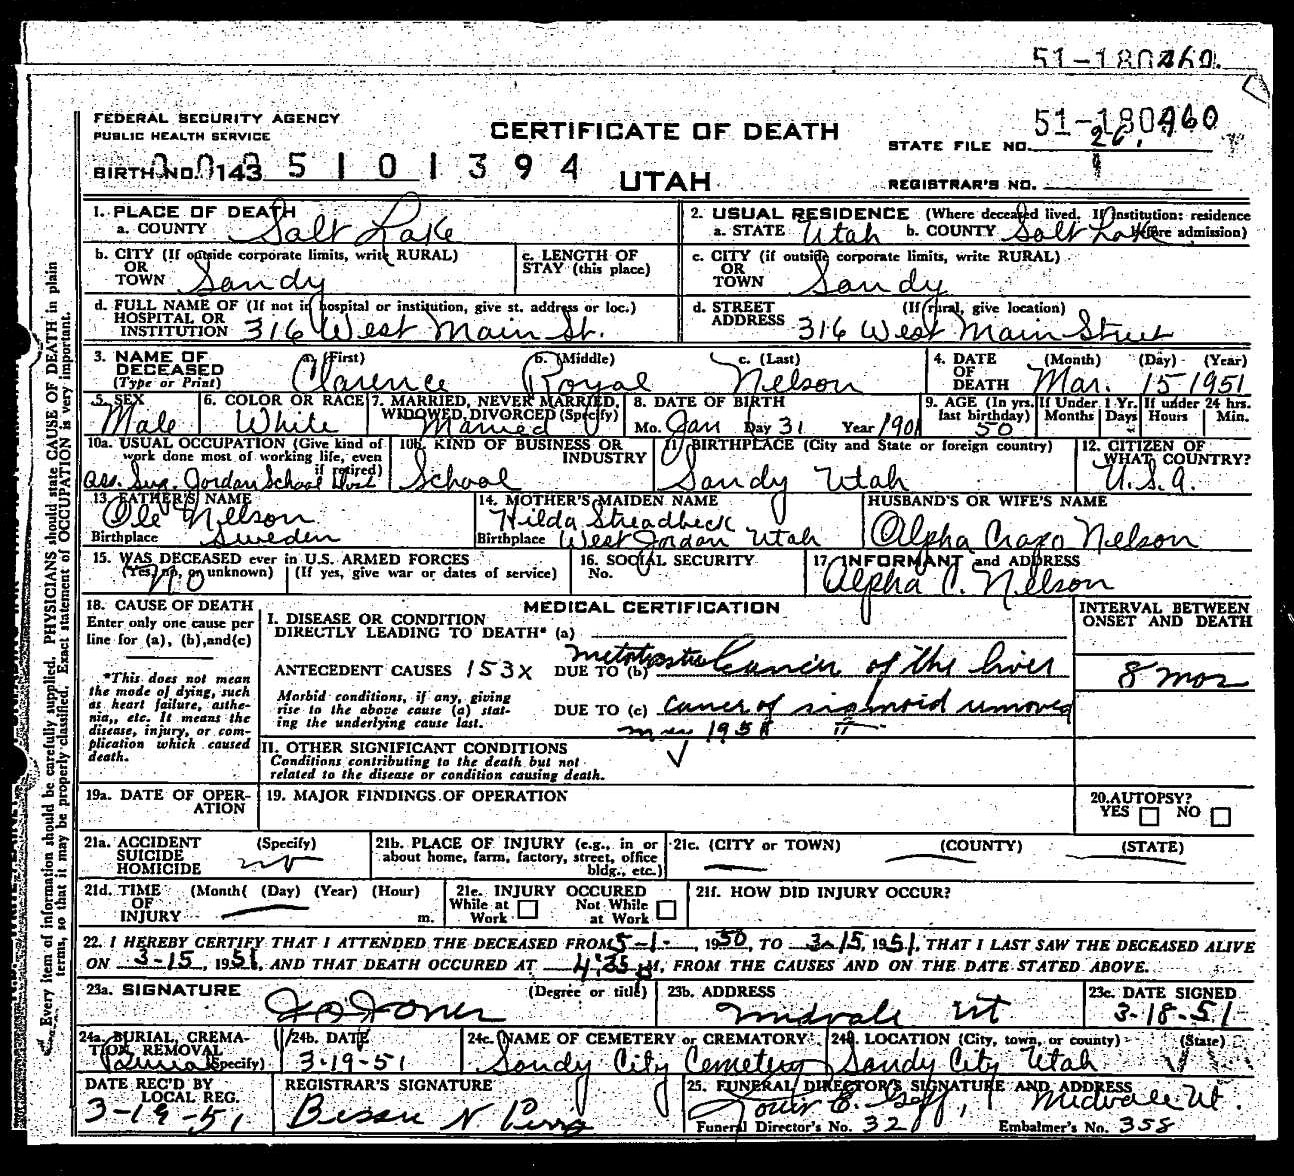 51-180460.
51-180460
FEDERAL SECURITY AGENCY
PUBLIC HEALTH SERVICE
CERTIFICATE OF DEATH
STATE FILE NO. 26,
BIRTH NO. 143 5101394
UTAH
REGISTRAR'S NO.
1. PLACE OF DEATH
a. COUNTY Salt Lake
2. USUAL RESIDENCE (Where deceased lived. If institution: residence before admission)
a. STATE Utah b. COUNTY Salt Lake
b. CITY (If outside corporate limits, write RURAL)
OR
TOWN Sandy
c. LENGTH OF
STAY (this place)
c. CITY (if outside corporate limits, write RURAL)
OR
TOWN Sandy
d. FULL NAME OF (If not in hospital or institution, give st. address or loc.)
HOSPITAL OR
INSTITUTION 316 West Main St.
d. STREET (If rural, give location)
ADDRESS 316 West Main Street
3. NAME OF
DECEASED
(Type or Print)
a. (First) b. (Middle) c. (Last)
Clarence Royal Nelson
4. DATE (Month) (Day) (Year)
OF
DEATH Mar. 15 1951
5. SEX
Male
6. COLOR OR RACE
White
7. MARRIED, NEVER MARRIED,
WIDOWED, DIVORCED (Specify)
Married
8. DATE OF BIRTH
Mo. Jan Day 31 Year 1901
9. AGE (In yrs. last birthday)
50
If Under 1 Yr.
Months Days
If under 24 hrs.
Hours Min.
10a. USUAL OCCUPATION (Give kind of
work done most of working life, even
if retired)
Jordan School Dist
10b. KIND OF BUSINESS OR
INDUSTRY
School
11. BIRTHPLACE (City and State or foreign country)
Sandy Utah
12. CITIZEN OF
WHAT COUNTRY?
U.S.A.
13. FATHER'S NAME
Ole Nelson
Birthplace Sweden
14. MOTHER'S MAIDEN NAME
Hilda Streadbeck
Birthplace West Jordan Utah
HUSBAND'S OR WIFE'S NAME
Alpha Nelson
15. WAS DECEASED ever in U.S. ARMED FORCES
(Yes, no, or unknown) (If yes, give war or dates of service)
No
16. SOCIAL SECURITY
No.
17. INFORMANT and ADDRESS
Alpha C. Nelson
18. CAUSE OF DEATH
Enter only one cause per
line for (a), (b), and (c)
*This does not mean
the mode of dying, such
as heart failure, asthe-
nia,, etc. It means the
disease, injury, or com-
plication which caused
death.
MEDICAL CERTIFICATION
I. DISEASE OR CONDITION
DIRECTLY LEADING TO DEATH* (a)
ANTECEDENT CAUSES 153X
DUE TO (b) Cancer of the liver
Morbid conditions, if any, giving
rise to the above cause (a) stat-
ing the underlying cause last.
DUE TO (c) cancer of sigmoid removed
II. OTHER SIGNIFICANT CONDITIONS
Conditions contributing to the death but not
related to the disease or condition causing death.
INTERVAL BETWEEN
ONSET AND DEATH
8 mos
19a. DATE OF OPER-
ATION
19. MAJOR FINDINGS OF OPERATION
20. AUTOPSY?
YES NO
21a. ACCIDENT (Specify)
SUICIDE
HOMICIDE no
21b. PLACE OF INJURY (e.g., in or
about home, farm, factory, street, office
bldg., etc.)
21c. (CITY or TOWN) (COUNTY) (STATE)
21d. TIME (Month( (Day) (Year) (Hour)
OF
INJURY m.
21e. INJURY OCCURED
While at Work Not While at Work
21f. HOW DID INJURY OCCUR?
22. I HEREBY CERTIFY THAT I ATTENDED THE DECEASED FROM 5-1-, 1950, TO 3-15, 1951, THAT I LAST SAW THE DECEASED ALIVE
ON 3-15, 1951, AND THAT DEATH OCCURED AT 4:35 M, FROM THE CAUSES AND ON THE DATE STATED ABOVE.
23a. SIGNATURE (Degree or title)
Jones
23b. ADDRESS
Midvale Ut
23c. DATE SIGNED
3-18-51
24a. BURIAL, CREMA-
TION REMOVAL
(Specify)
Burial
24b. DATE
3-19-51
24c. NAME OF CEMETERY or CREMATORY
Sandy City Cemetery
24d. LOCATION (City, town, or county) (State)
Sandy City Utah
DATE REC'D BY
LOCAL REG.
3-19-51
REGISTRAR'S SIGNATURE
Bessie N
25. FUNERAL DIRECTOR'S SIGNATURE AND ADDRESS
Louis E. Goff, Midvale Ut.
Funeral Director's No. 32 Embalmer's No. 358
Every item of information should be carefully supplied. PHYSICIANS should state CAUSE OF DEATH in plain
terms, so that it may be properly classified. Exact statement of OCCUPATION is very important.